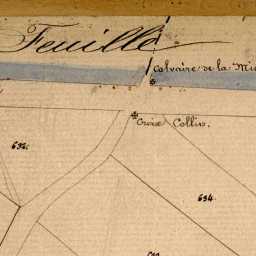 Feuille
Calvaire de la Mis
Croix Collin.
632.
634.